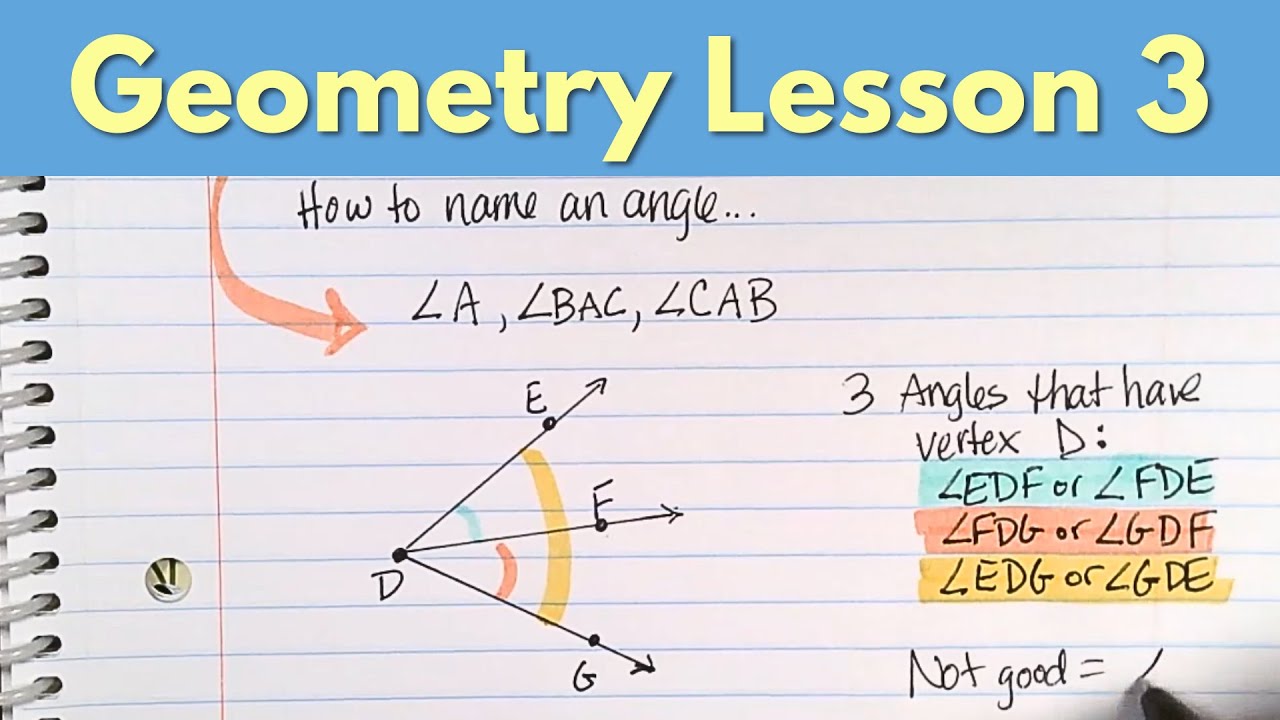 Geometry Lesson 3
How to name an angle...
∠A, ∠BAC, ∠CAB
E
F
D
G
3 Angles that have
vertex D:
∠EDF or ∠FDE
∠FDG or ∠GDF
∠EDG or ∠GDE
Not good = ∠